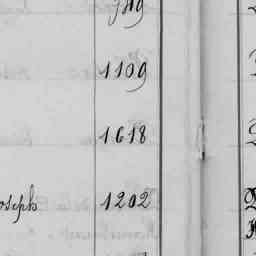 1109
1618
oseph 1202